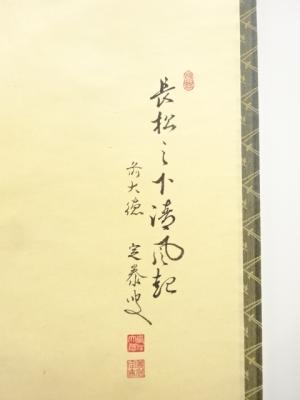 長松之下清風起
前大徳 定泰叟